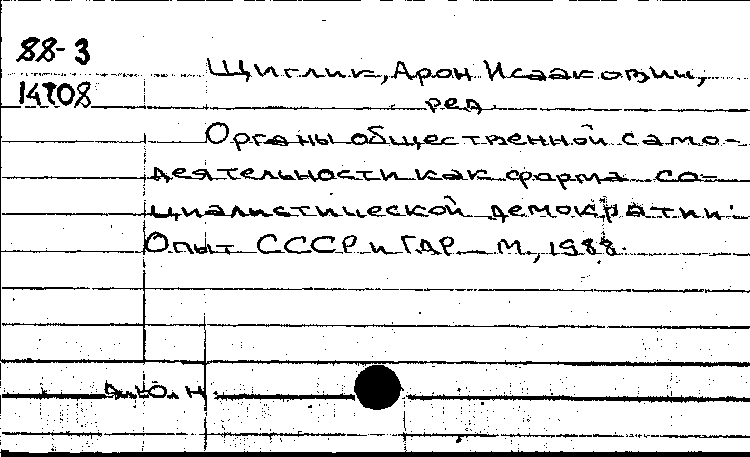 88-3
14808
Щиглик, Арон Исаакович,
ред.
Органы общественной само-
деятельности как форма со-
циалистической демократии:
Опыт СССР и ГДР. — М., 1988.